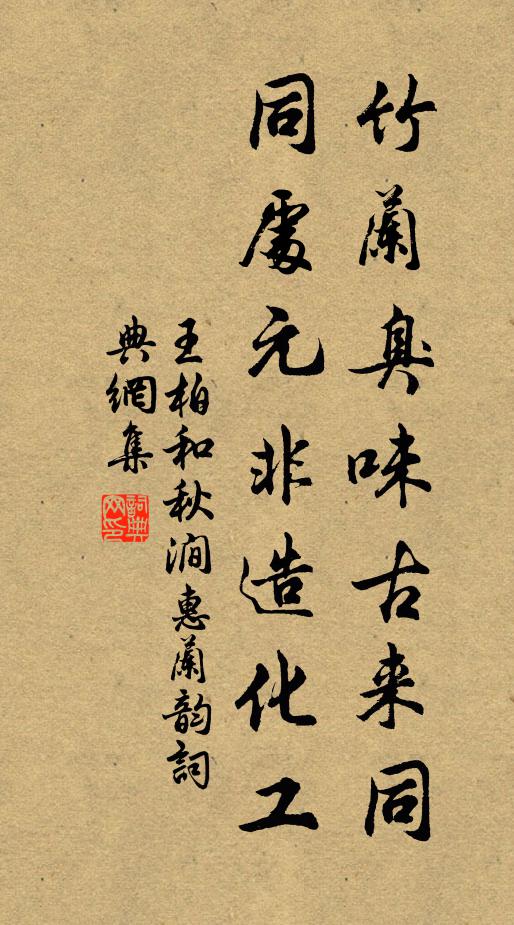 竹蘭臭味古来同
同處元非造化工
王柏和秋澗惠蘭韵詞
典網集
詞典
网印